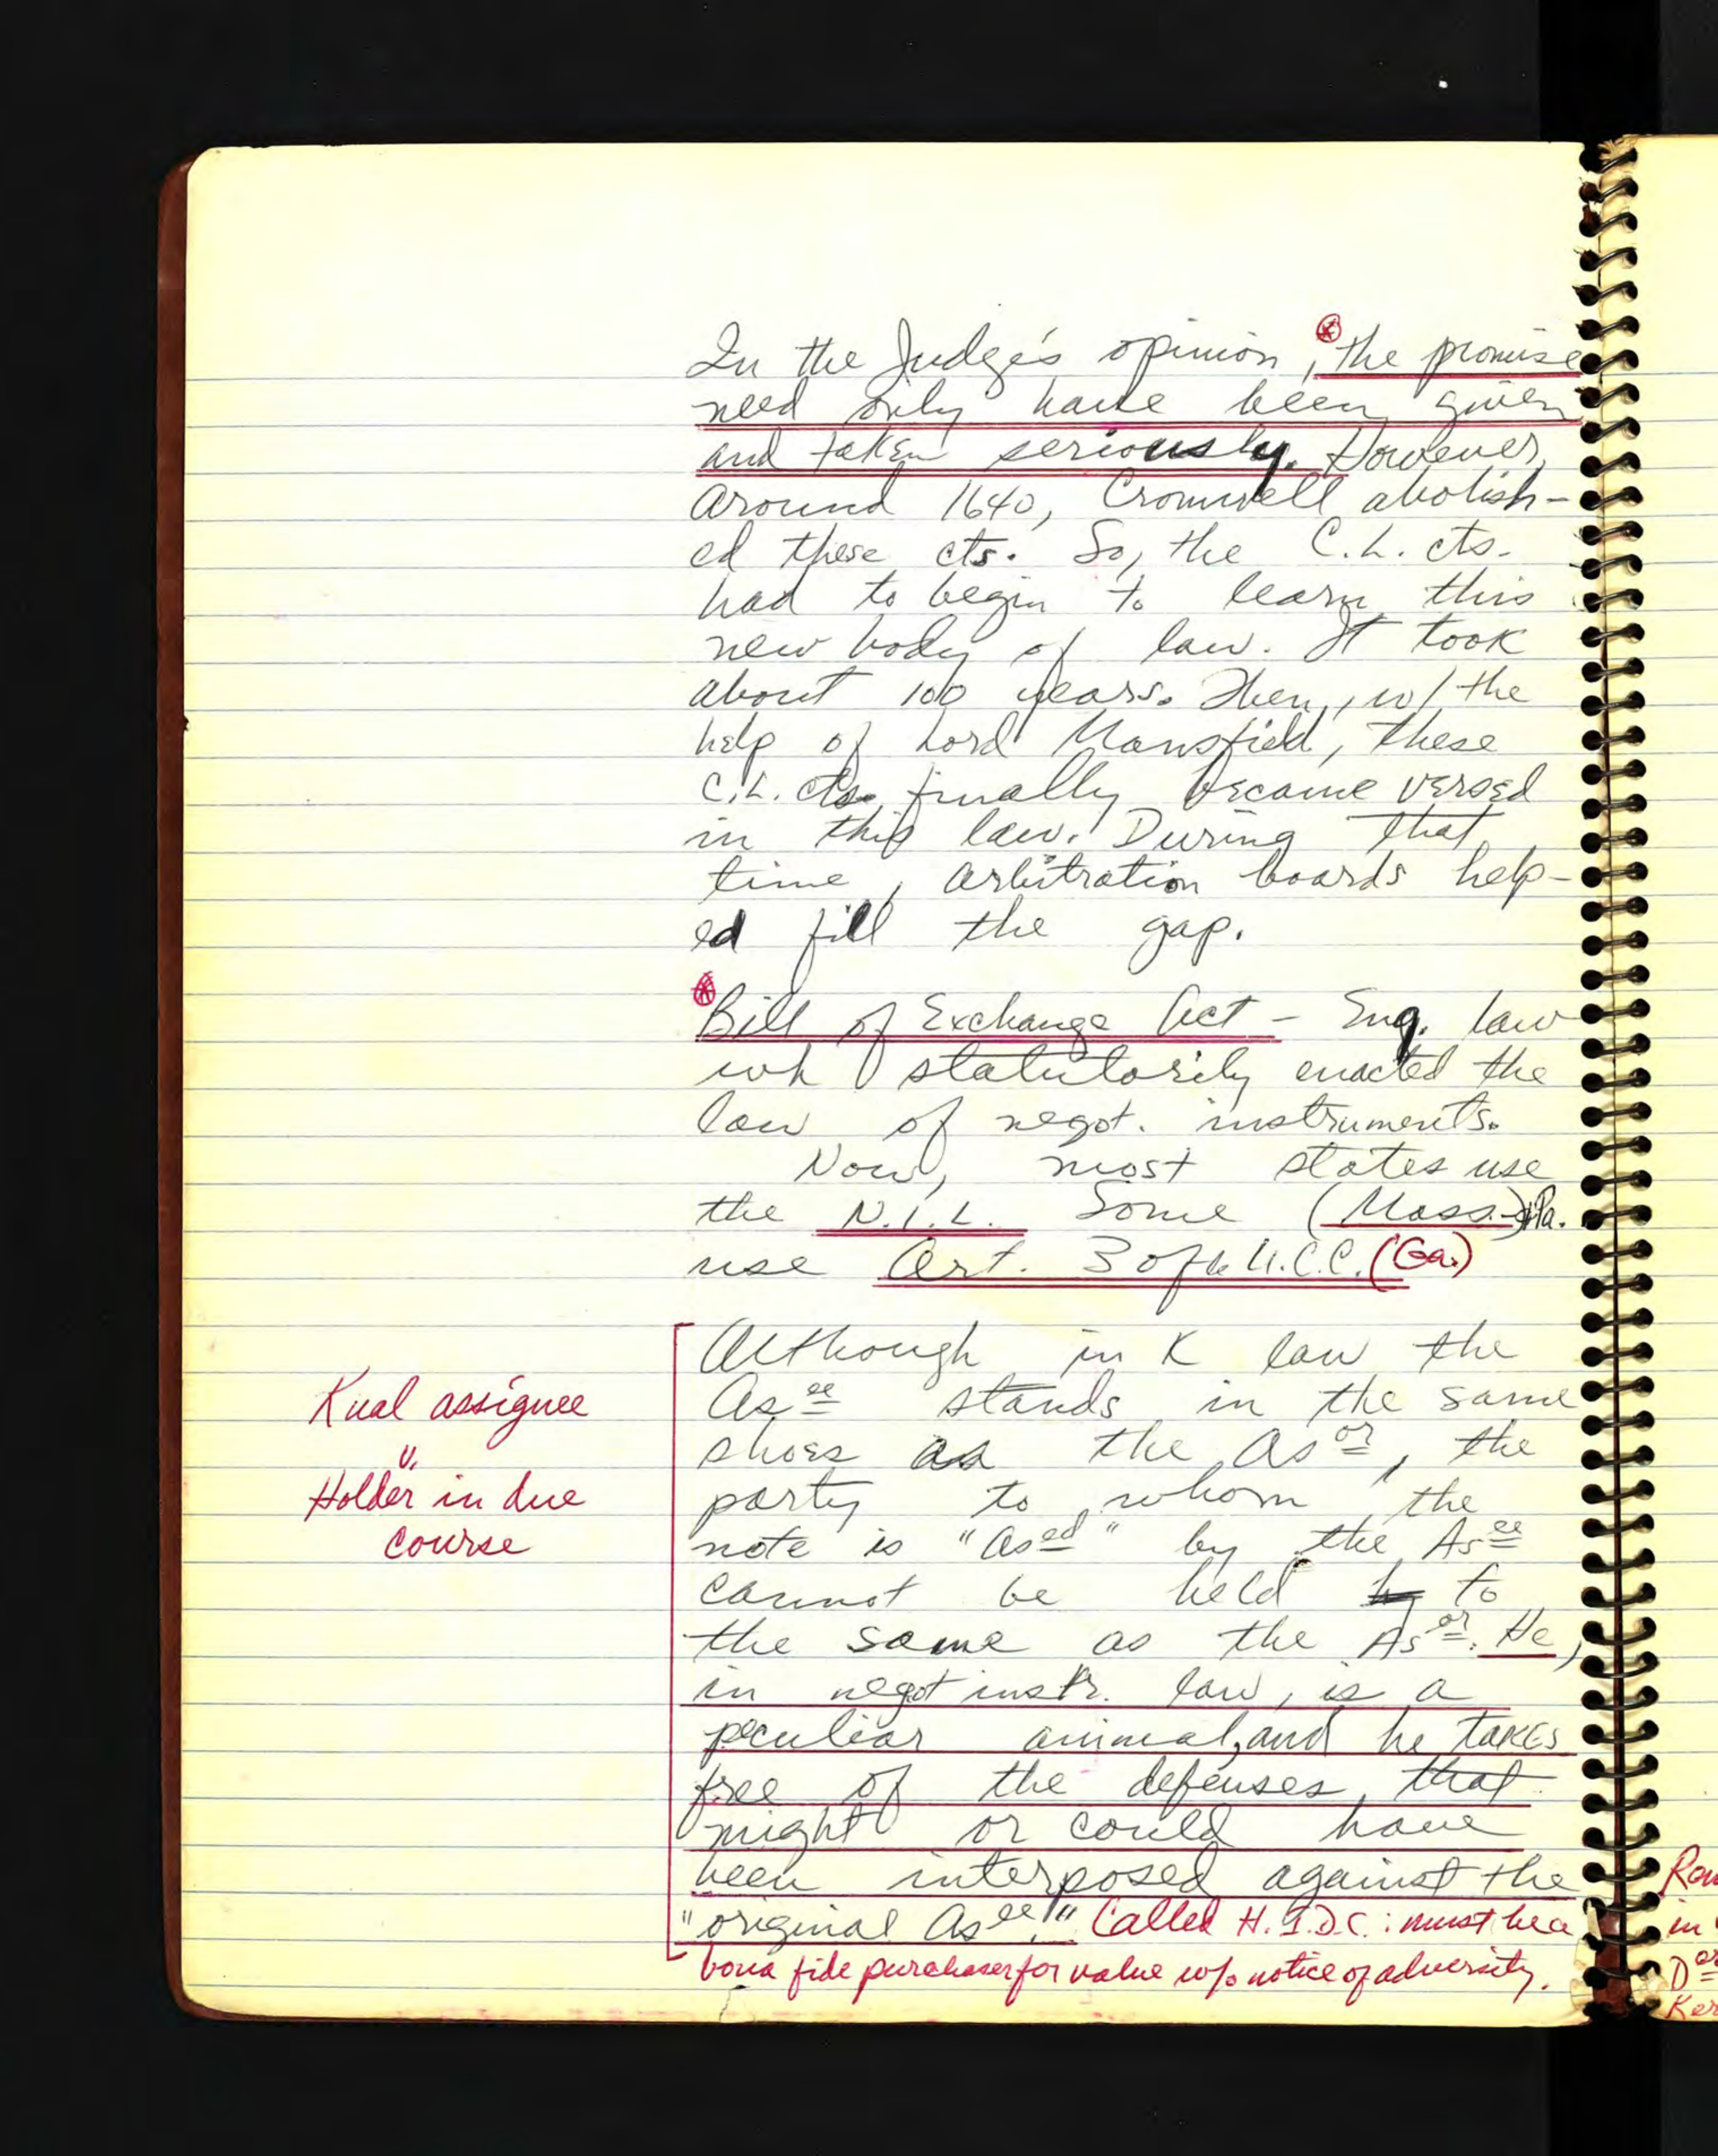 In the Judge's opinion, the promise
need only have been given
and taken seriously. However,
around 1640, Cromwell abolish-
ed these cts. So, the C.L. cts.
had to begin to learn this
new body of law. It took
about 100 years. Then, w/ the
help of Lord Mansfield, these
C.L. cts. finally became versed
in this law. During that
time, arbitration boards help-
ed fill the gap.
Bill of Exchange Act - Eng. law
wh statutorily enacted the
law of negot. instruments.
Now, most states use
the N.I.L. Some (Mass.) & Pa.
use Art. 3 of U.C.C. (Ga.)
Kual assignee
v.
Holder in due
course
Although in K law the
As ee stands in the same
shoes as the As or, the
party to whom the
note is "As ed" by the As ee
cannot be held to
the same as the As or. He,
in negot instr. law, is a
peculiar animal, and he takes
free of the defenses that
might or could have
been interposed against the
"original As ee." Called H.I.D.C.: must be a
bona fide purchaser for value w/o notice of adversity.
in
D or